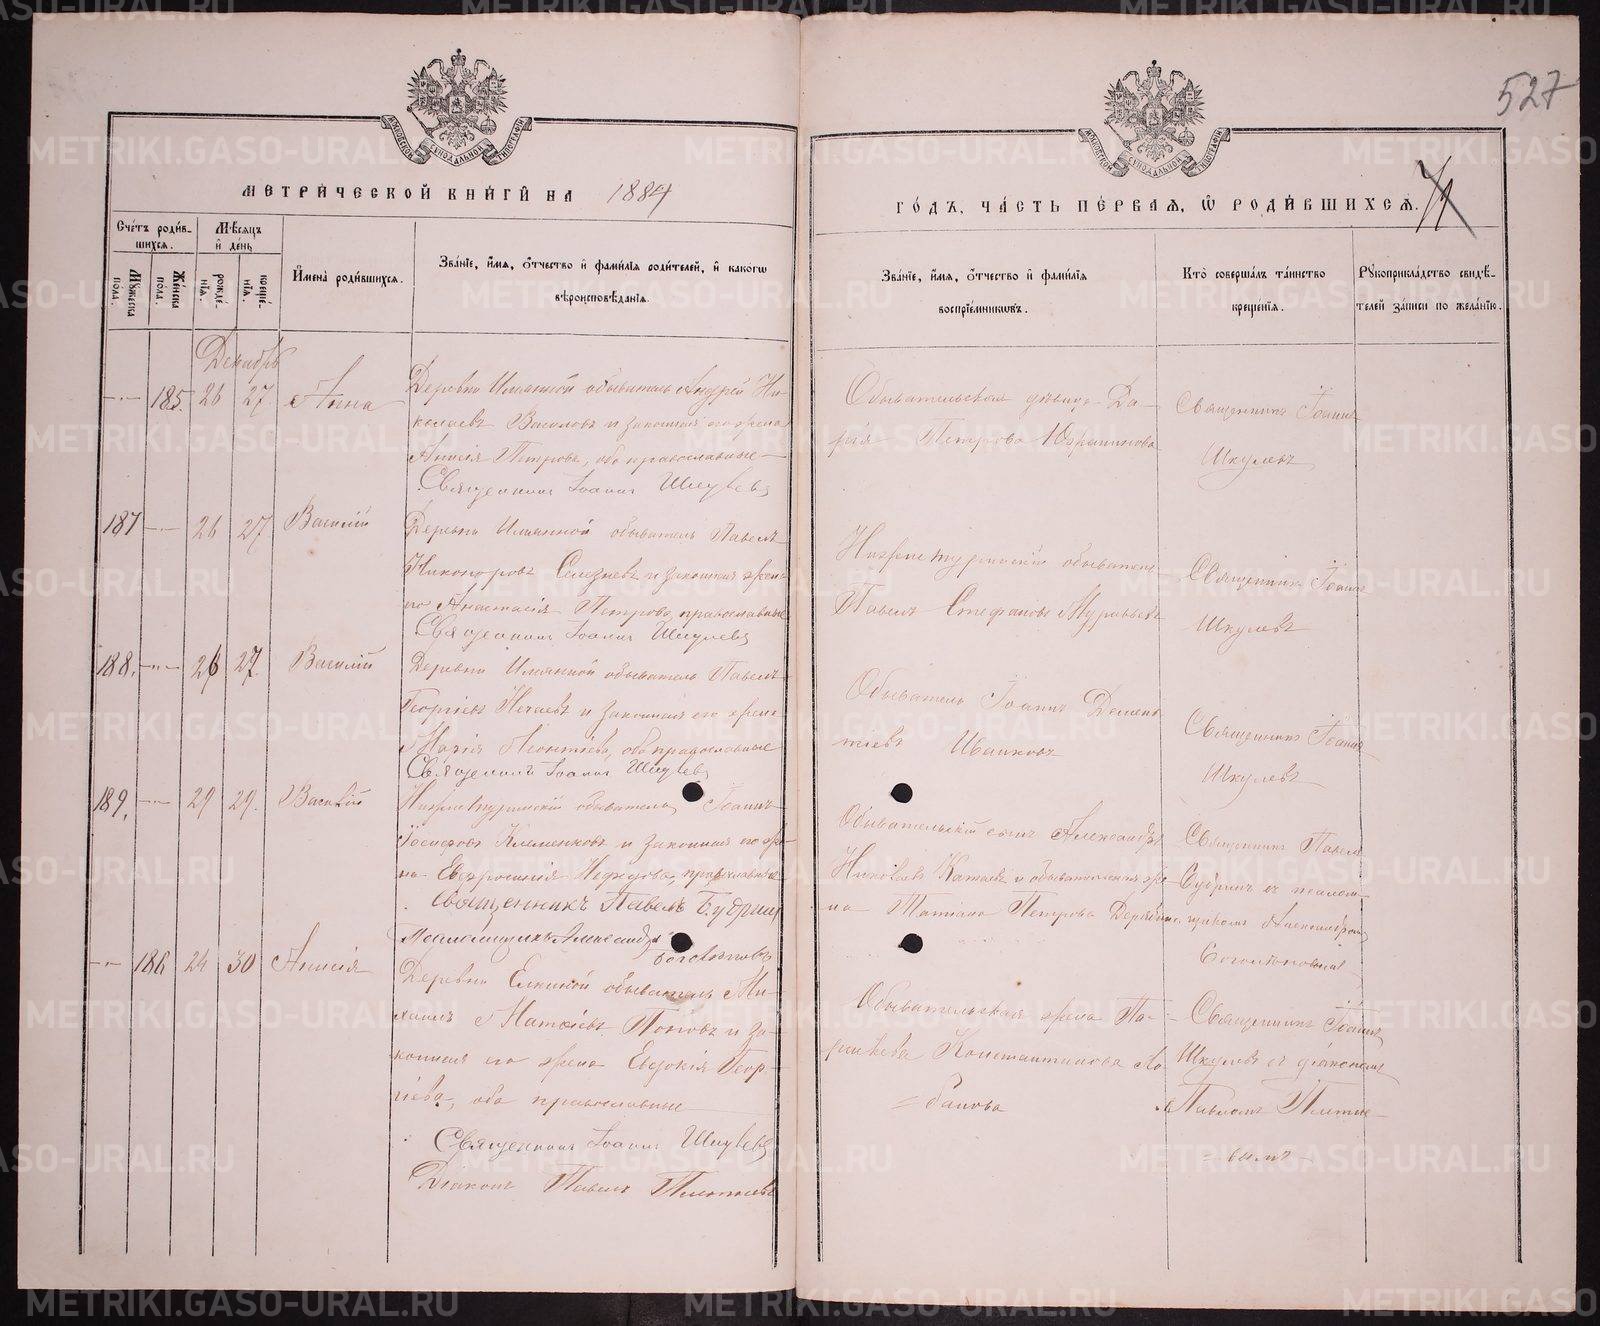 527
МОСКОВСКОЙ СѴНОДАЛЬНОЙ ТИПОГРАФІИ
МОСКОВСКОЙ СѴНОДАЛЬНОЙ ТИПОГРАФІИ
МЕТРИЧЕСКОЙ КНИГИ НА 1884
ГОДЪ, ЧАСТЬ ПЕРВАЯ, Ѡ РОДИВШИХСЯ.
Счетъ родив-
шихся.
Мужеска пола.
Женска пола.
Мѣсяцъ
и день
рожде-
нія.
креще-
нія.
Имена родившихся.
Званіе, имя, отчество и фамилія родителей, и какогѡ
вѣроисповѣданія.
Званіе, имя, отчество и фамилія
воспріемникѡвъ.
Кто совершалъ таинство
крещенія.
Рукоприкладство свидѣ-
телей записи по желанію.
Декабрь
185. 26 27. Анна
Деревни Именной обыватель Андрей Ни-
колаевъ Василовъ и законная его жена
Анисія Петрова, оба православные
Священникъ Іоаннъ Шкулевъ
Обывательская дѣвица Да-
рія Петрова
Священникъ Іоаннъ
Шкулевъ
187 26 27. Василій
Деревни Именной обыватель Павелъ
Никоноровъ Селезневъ и законная жена
его Анастасія Петрова, православные
Священникъ Іоаннъ Шкулевъ
Нижнетуринскій обыватель
Павелъ Стефановъ Муравьевъ
Священникъ Іоаннъ
Шкулевъ
188. 26 27. Василій
Деревни Именной обыватель Павелъ
Георгіевъ Нечаевъ и законная его жена
Марія Леонтіева, оба православные
Священникъ Іоаннъ Шкулевъ
Обыватель Іоаннъ Демен
тіевъ Ивановъ
Священникъ Іоаннъ
Шкулевъ
189. 29 29. Василій
Нижнетуринскій обыватель Іоаннъ
Іосифовъ Клеменковъ и законная его же-
на Евфросинія, православные
Священникъ Павелъ Будринъ
Псаломщикъ Александръ
Боголѣповъ
Обывательскій сынъ Александръ
Николаевъ Катаевъ и обывательская же-
на Татіана Петрова Дерябина
Священникъ Павелъ
Будринъ съ псалом-
щикомъ Александромъ
Боголѣповымъ
186 24 30 Анисія
Деревни Елкиной обыватель Ми-
хаилъ Матѳіевъ Поповъ и за-
конная его жена Евдокія Геор-
гіева, оба православные
Священникъ Іоаннъ Шкулевъ
Діаконъ Павелъ Плотневъ
Обывательская жена Па-
раскева Константинова Ло-
банова
Священникъ Іоаннъ
Шкулевъ съ діакономъ
Павломъ Плотне-
вымъ
METRIKI.GASO-URAL.RU